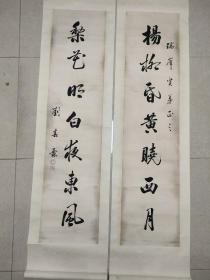 楊柳昏黃曉西月
梨花明白夜東風
劉春霖